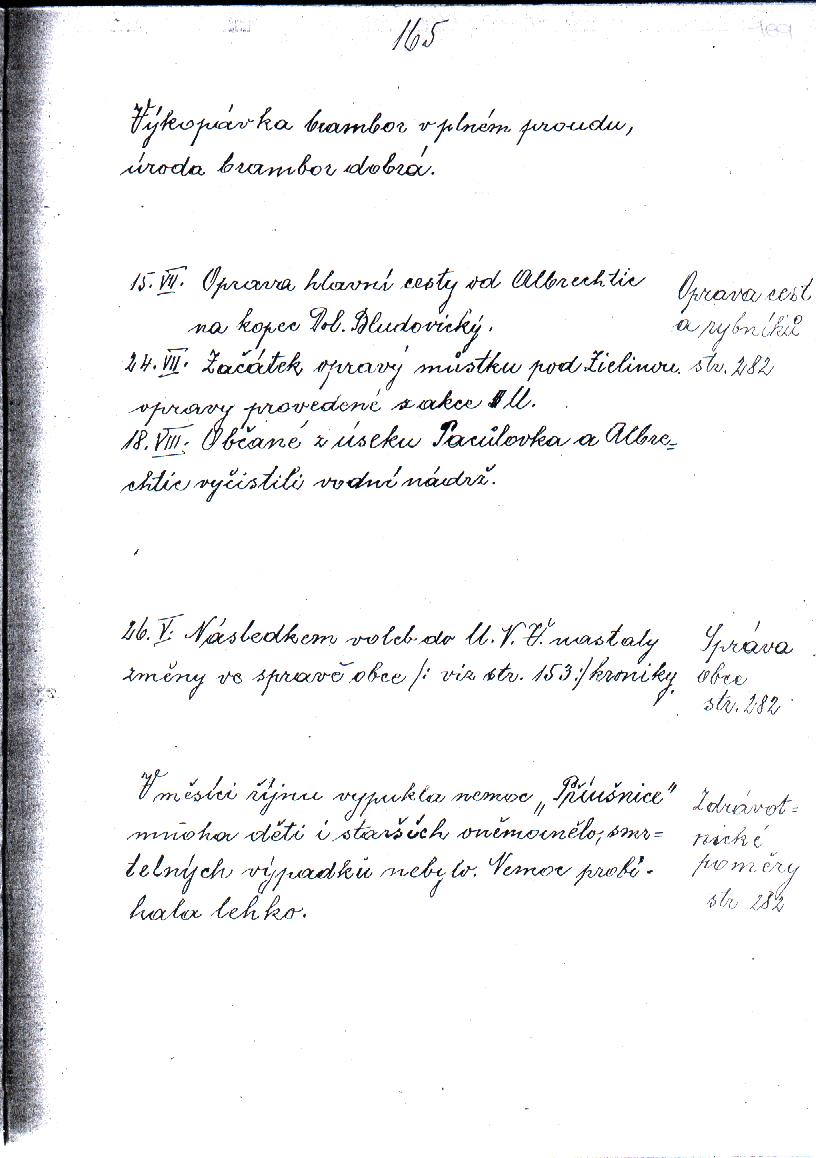 165
Výkopávka brambor v plném proudu,
úroda brambor dobrá.
15. VII. Oprava hlavní cesty od Albrechtic
na kopec Dol. Bludovický.
Oprava cest
a rybníků
24. VII. Začátek opravý můstku pod Zielinou.
str. 282
opravy provedené z akce M.
18. VIII. Občané z úseku Pacúlovka a Albre=
chtic vyčistili vodní nádrž.
26. V. Následkem voleb do M. N. V. nastaly
změny ve spravě obce /: viz str. 153:/ kroniky.
Správa
obce
str. 282
V měsíci říjnu vypukla nemoc „Příušnice"
mnoha děti i starších oněmocnělo, smr=
telných výpadků nebylo. Nemoc probí-
hala lehko.
Zdrávot=
nické
poměry
str 282